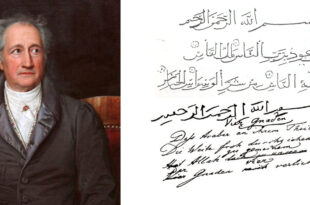 بسم الله الرحمن الرحيم
اعوذ برب الناس ملك الناس
اله الناس من شر الوسواس الخناس
بسم الله الرحمن الرحيم
Vier Gnaden
Dass Araber an ihrem Theil
Die Weite froh durchziehen
zu gemeinem
Hat Allah
Der Gnaden verlie